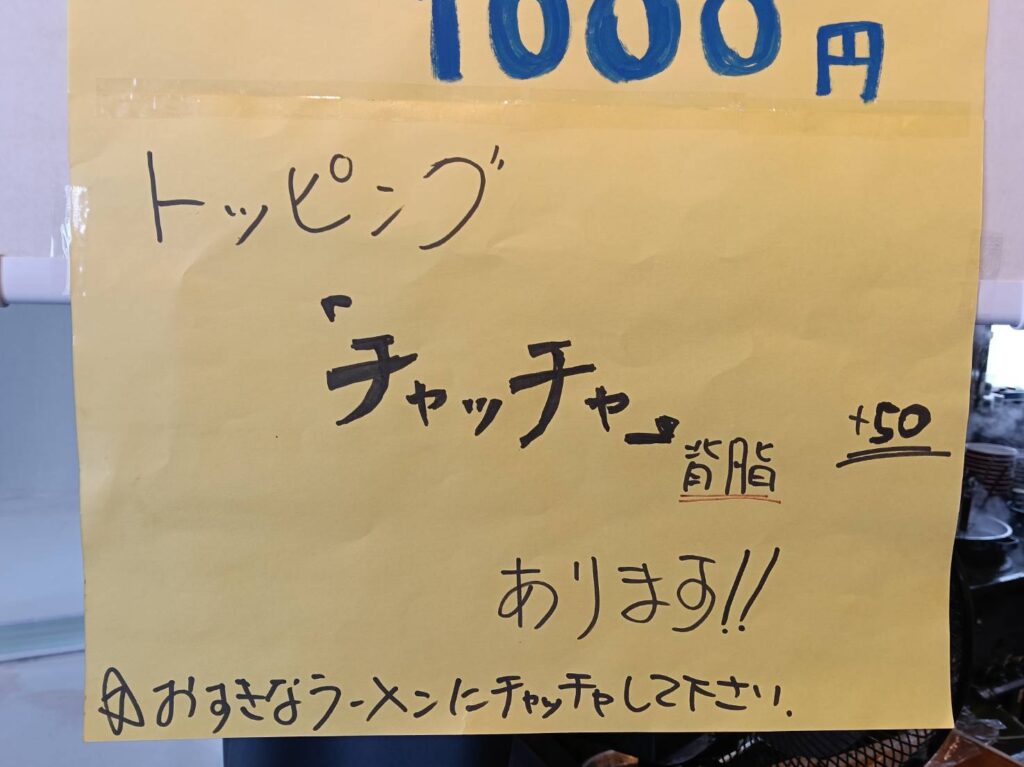 1000円
トッピング
「チャッチャ」
背脂
+50
あります!!
☆おすきなラーメンにチャッチャして下さい.